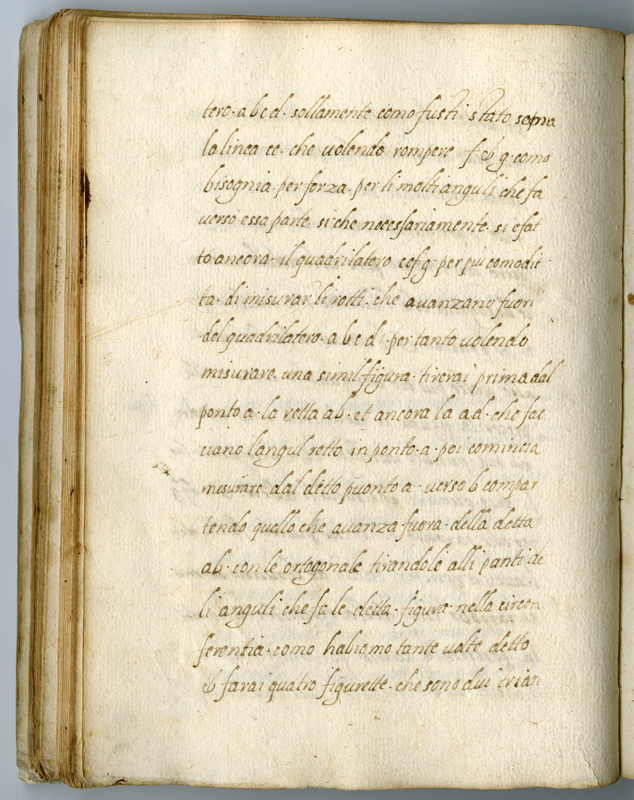 tero. a b c d. sollamente como fusti stato sopra
la linea ce. che volendo rompere f & g. como
bisognia. per forza. per li molti anguli che fa
verso essa parte. si che necessariamente. si e fat
to ancora. il quadrilatero cefg. per piu comodit
ta. di misurar li rotti. che avanzano fuor
del quadrilatero. a b c d. per tanto volendo
misurare. una simil figura. tirerai prima dal
ponto a. la retta ab. et ancora la ad. che fac
ciano l'angul retto in ponto. a. poi comincia
mesurare dal detto puonto a. verso b compar
tendo quello che avanza fuora. della detta
ab. con le ortogonale tirandole alli panti de
li anguli che fa le detta. figura. nella circon
ferentia. como habiamo tante valte detto
& farai quatro figurette. che sono dui trian